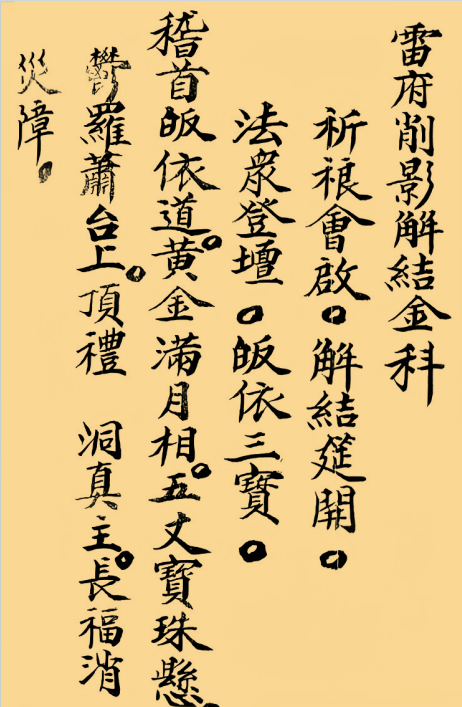 雷府削影解結金科
祈禳會啟。解結筵開。
法衆登壇。皈依三寶。
稽首皈依道。黃金滿月相。五丈寶珠懸。
鬱羅蕭台上。頂禮　洞真主。長福消
災障。